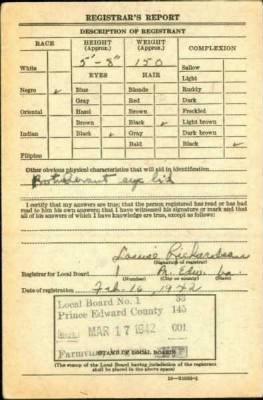 REGISTRAR'S REPORT
DESCRIPTION OF REGISTRANT
RACE
HEIGHT (Approx.)
WEIGHT (Approx.)
COMPLEXION
5'-8" 150
White
Sallow
EYES HAIR
Light
Negro ✓ Blue Blonde Ruddy
Gray Red Dark
Oriental Hazel Brown Freckled
Brown Black ✓ Light brown
Indian Black ✓ Gray Dark brown
Bald Black ✓
Filipino
Other obvious physical characteristics that will aid in identification
eye lid
I certify that my answers are true; that the person registered has read or has had read to him his own answers; that I have witnessed his signature or mark and that all of his answers of which I have knowledge are true, except as follows:
Louise Richardson
(Signature of registrar)
Registrar for Local Board 1 Pr. Edw. Va.
(Number) (City or county) (State)
Date of registration Feb. 16, 1942
Local Board No. 1 53
Prince Edward County 145
MAR 17 1942 001
Farmville
(STAMP OF LOCAL BOARD)
(The stamp of the Local Board having jurisdiction of the registrant shall be placed in the above space)